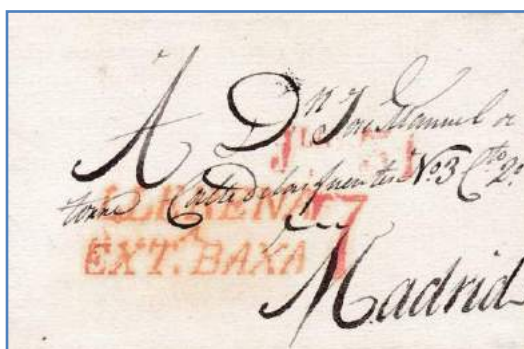 A Dⁿ Jose Manuel
Calle de las fuentes Nº3 Cto 2º
LLERENA
7
EXT. BAXA
Madrid